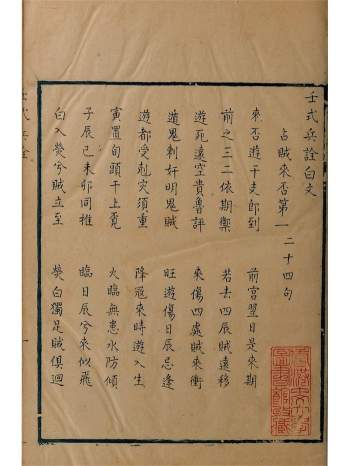 壬式兵詮白文
占賊來否第一 二十四句
來否遊干支即到 前宮翌日是來期
前之三二依期禦 若去四辰賊遠移
遊死遠空貴魯評 來傷四處賊來衝
遁鬼剩奸明鬼賊 旺遊傷日辰忌逢
遊都受剋灾須重 降冠來時遊入生
寅置旬頭干上覓 火臨無患水防傾
子辰己未卯同推 臨日辰兮來似飛
白入熒兮賊立至 熒白獨是賊俱迴